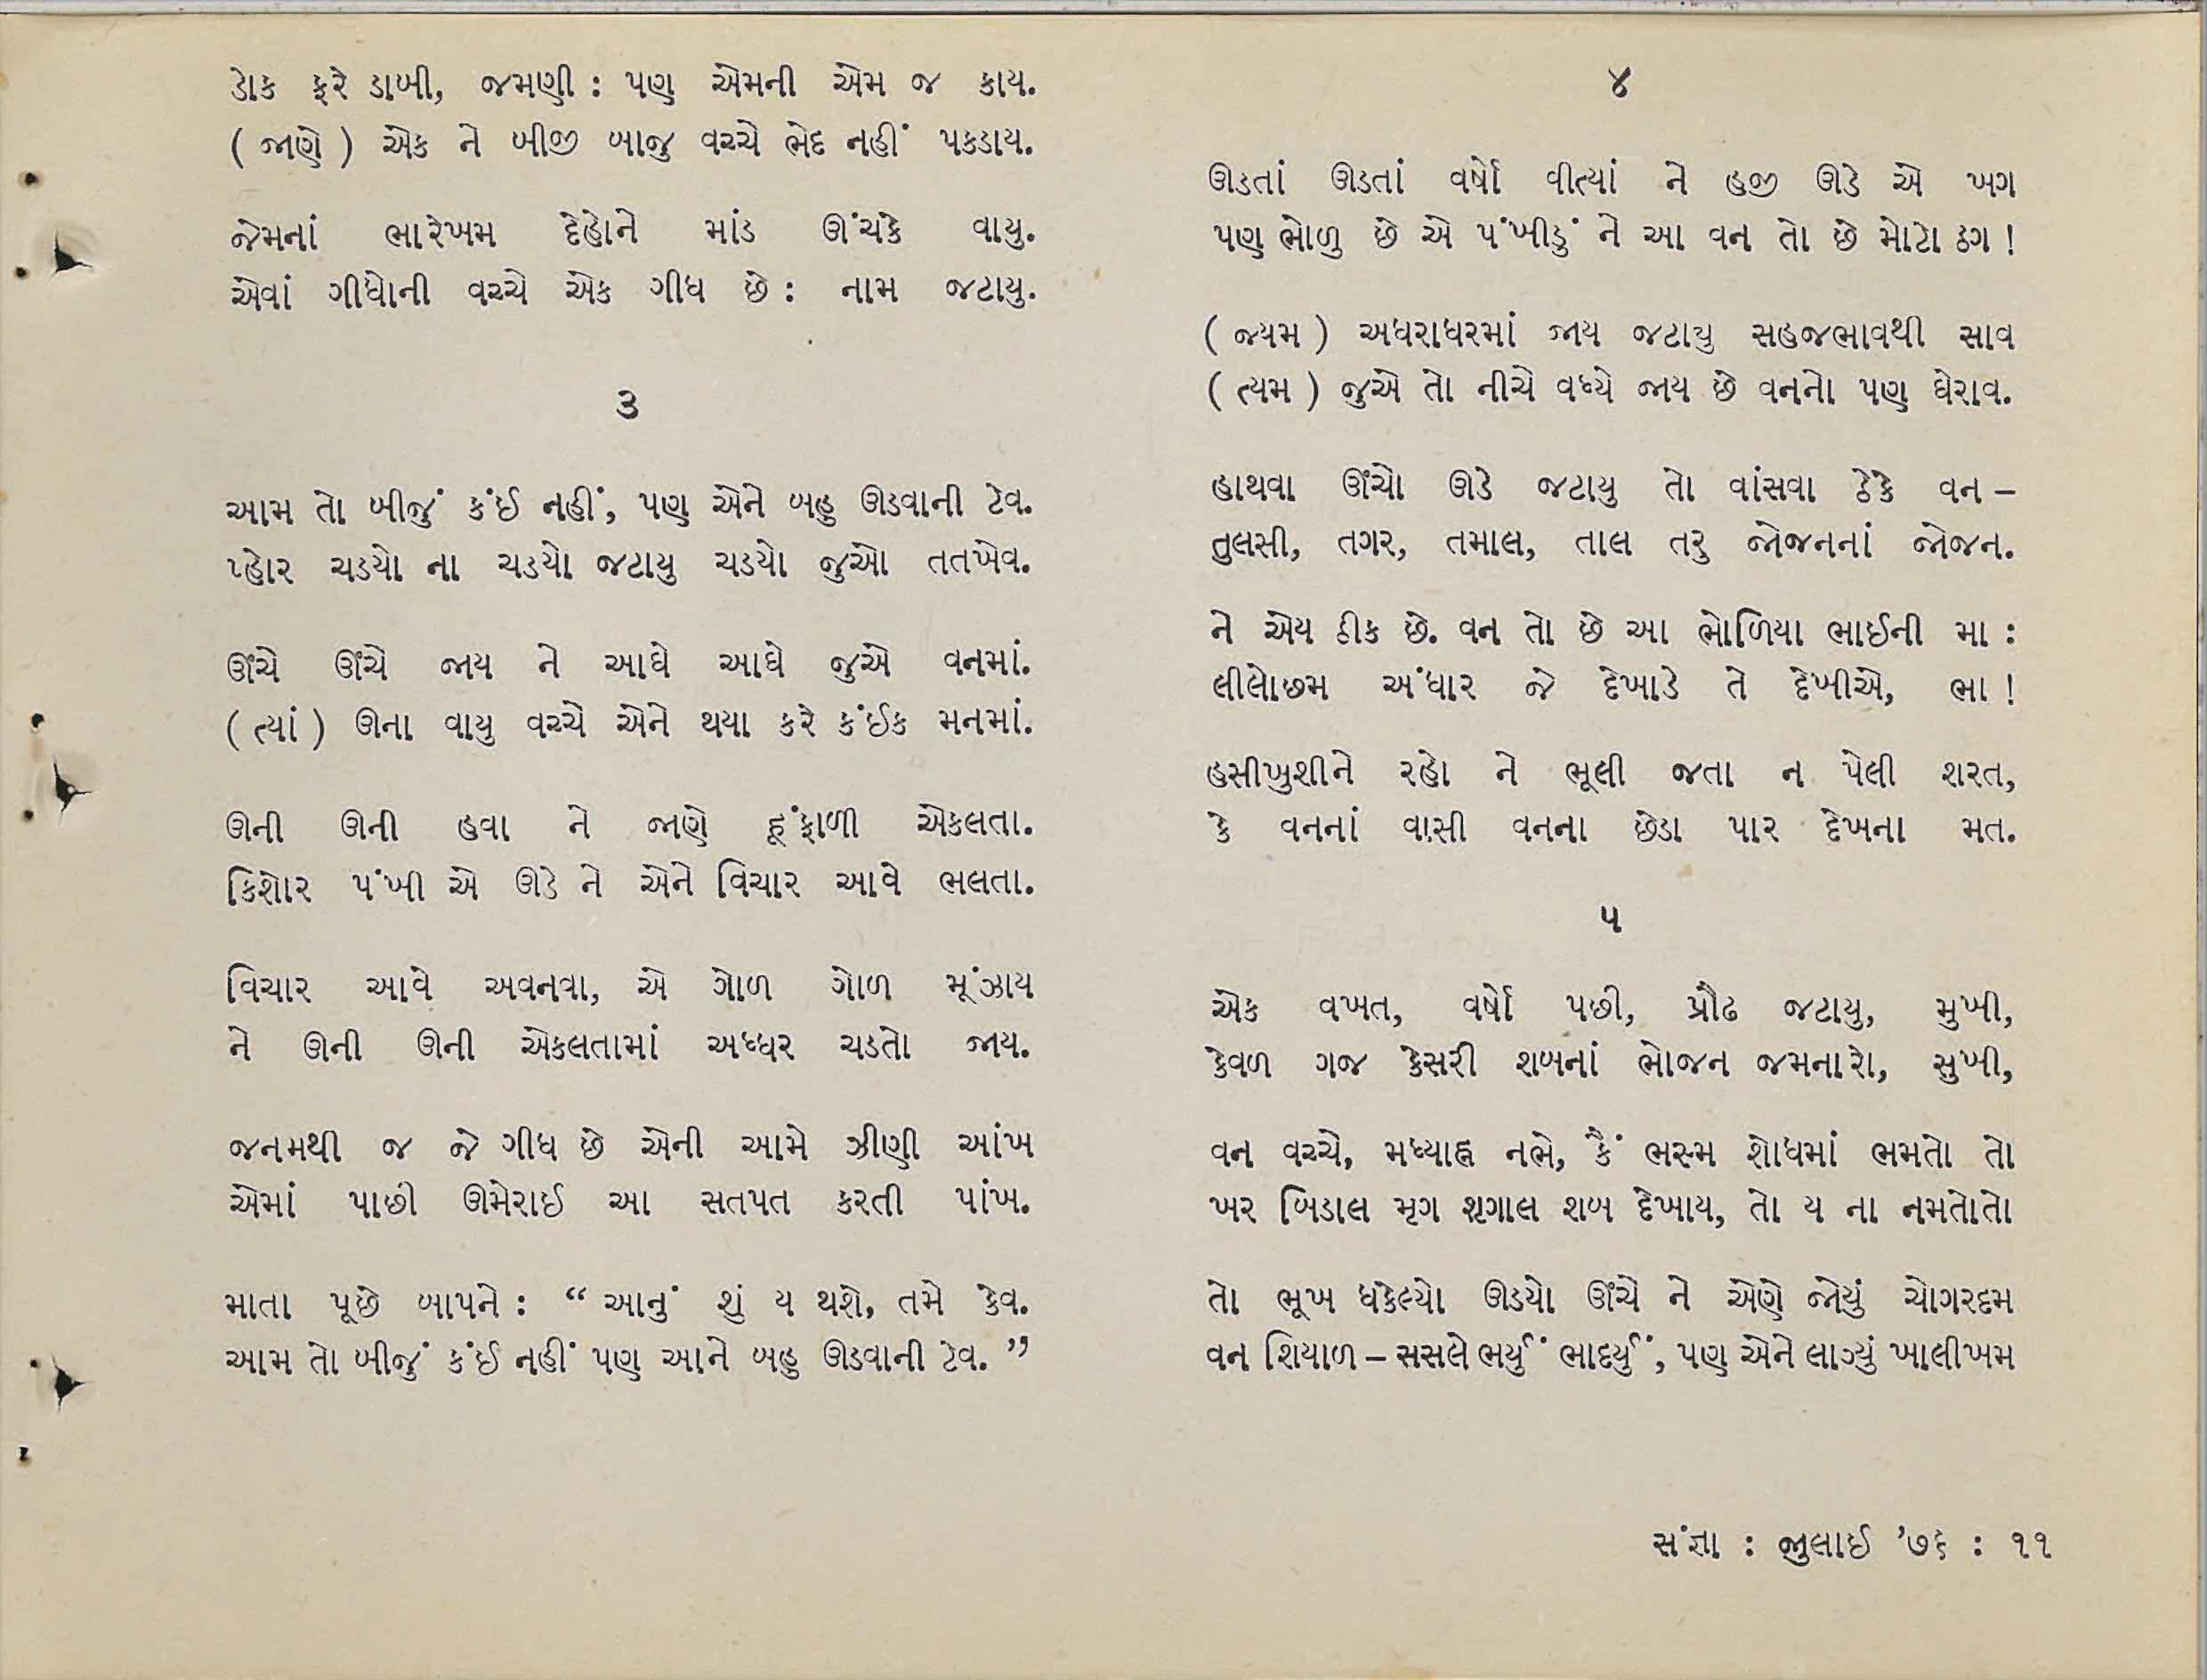 ડોક ફરે ડાબી, જમણી : પણ એમની એમ જ કાય.
( જાણે ) એક ને બીજી બાજુ વચ્ચે ભેદ નહીં પકડાય.
જેમનાં ભારેખમ દેહોને માંડ ઊંચકે વાયુ.
એવાં ગીધોની વચ્ચે એક ગીધ છે : નામ જટાયુ.
૩
આમ તો બીજું કંઈ નહીં, પણ એને બહુ ઊડવાની ટેવ.
પ્હોર ચડયો ના ચડયો જટાયુ ચડયો જુઓ તતખેવ.
ઊંચે ઊંચે જાય ને આઘે આઘે જુએ વનમાં.
( ત્યાં ) ઊના વાયુ વચ્ચે એને થયા કરે કંઈક મનમાં.
ઊની ઊની હવા ને જાણે હૂંફાળી એકલતા.
કિશોર પંખી એ ઊડે ને એને વિચાર આવે ભલતા.
વિચાર આવે અવનવા, એ ગોળ ગોળ મૂંઝાય
ને ઊની ઊની એકલતામાં અધ્ધર ચડતો જાય.
જનમથી જ જે ગીધ છે એની આમે ઝીણી આંખ
એમાં પાછી ઊમેરાઈ આ સતપત કરતી પાંખ.
માતા પૂછે બાપને : “ આનું શું ય થશે, તમે કેવ.
આમ તો બીજું કંઈ નહીં પણ આને બહુ ઊડવાની ટેવ. ”
૪
ઊડતાં ઊડતાં વર્ષો વીત્યાં ને હજી ઊડે એ ખગ
પણ ભોળુ છે એ પંખીડું ને આ વન તો છે મોટો ઠગ !
( જ્યમ ) અધરાધરમાં જાય જટાયુ સહજભાવથી સાવ
( ત્યમ ) જુએ તો નીચે વધ્યે જાય છે વનનો પણ ઘેરાવ.
હાથવા ઊંચો ઊડે જટાયુ તો વાંસવા ઠેકે વન –
તુલસી, તગર, તમાલ, તાલ તરુ જોજનનાં જોજન.
ને એય ઠીક છે. વન તો છે આ ભોળિયા ભાઈની મા :
લીલોછમ અંધાર જે દેખાડે તે દેખીએ, ભા !
હસીખુશીને રહો ને ભૂલી જતા ન પેલી શરત,
કે વનનાં વાસી વનના છેડા પાર દેખના મત.
૫
એક વખત, વર્ષો પછી, પ્રૌઢ જટાયુ, મુખી,
કેવળ ગજ કેસરી શબનાં ભોજન જમનારો, સુખી,
વન વચ્ચે, મધ્યાહ્ન નભે, કૈં ભસ્મ શોધમાં ભમતો તો
ખર બિડાલ મૃગ શૃગાલ શબ દેખાય, તો ય ના નમતોતો
તો ભૂખ ધકેલ્યો ઊડયો ઊંચે ને એણે જોયું ચોગરદમ
વન શિયાળ – સસલે ભર્યું ભાદર્યું, પણ એને લાગ્યું ખાલીખમ
સંજ્ઞા : જુલાઈ ’૭૬ : ૧૧